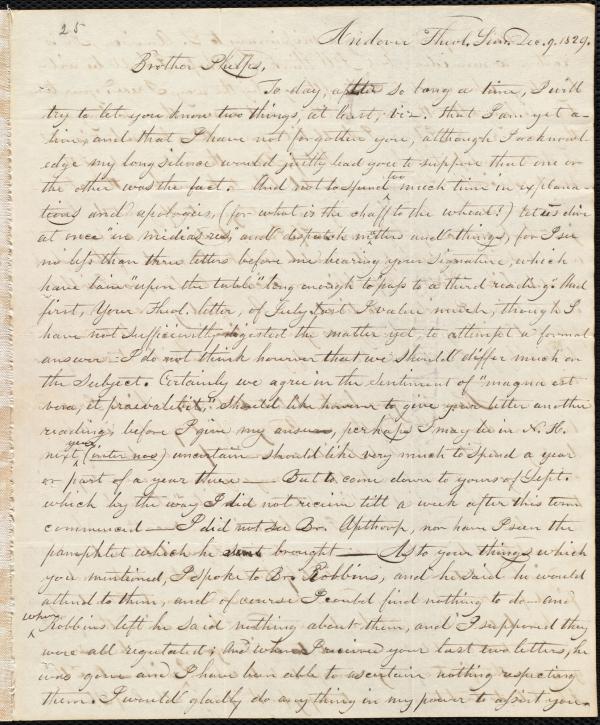 25
Andover Theol. Sem. Dec. 9. 1829.
Brother Phelps,
To day, after so long a time, I will
try to let you know two things, at least, viz. that I am yet a-
live, and that I have not forgotten you, although I acknowl-
edge my long silence would justly lead you to suppose that one or
the other was the fact. And not to spend too much time in explana-
tions and apologies, (for what is the chaff to the wheat!) let us dive
at once "in medias res," and dispatch matters and things, for I see
no less than three letters before me bearing your signature, which
have lain "upon the table" long enough to "pass to a third reading." And
first, Your Theol. letter, of July last I value much, though I
have not sufficiently digested the matter yet, to attempt a formal
answer - I do not think however that we should differ much on
the subject. Certainly we agree in the sentiment of "magna est
vera, et praevalebit," should like however to give your letter another
reading, before I give my answer, perhaps I may be in N. H.
next year, (inter nos) uncertain should like very much to spend a year
or part of a year there — But to come down to yours of Sept.
which by the way I did not receive till a week after this term
commenced — I did not see Bro. Apthorp, nor have I seen the
pamphlet which he brought — As to your things which
you mentioned, I spoke to Bro Robbins, and he said he would
attend to them, and of course I could find nothing to do - and
when Robbins left he said nothing about them, and I supposed they
were all regulated; And when I received your last two letters, he
was gone and I have been able to ascertain nothing respecting
them. I would gladly do anything in my power to assist you.